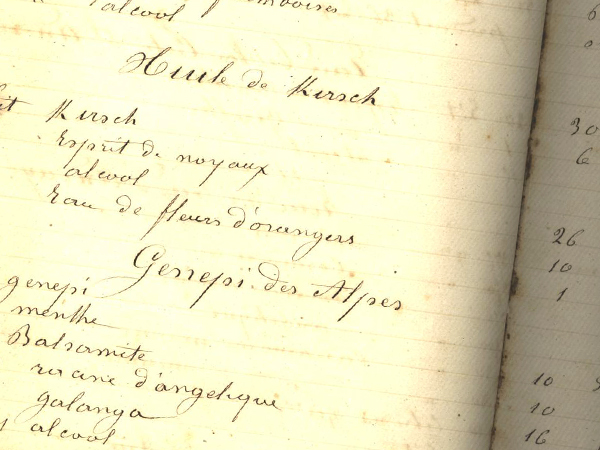 alcool
Huile de Kirsch
Kirsch
Esprit de noyaux
alcool
Eau de fleurs d'orangers
Genepi des Alpes
genepi
menthe
Balsamite
racine d'angelique
galanga
alcool
6
30
6
26
10
1
10
10
16